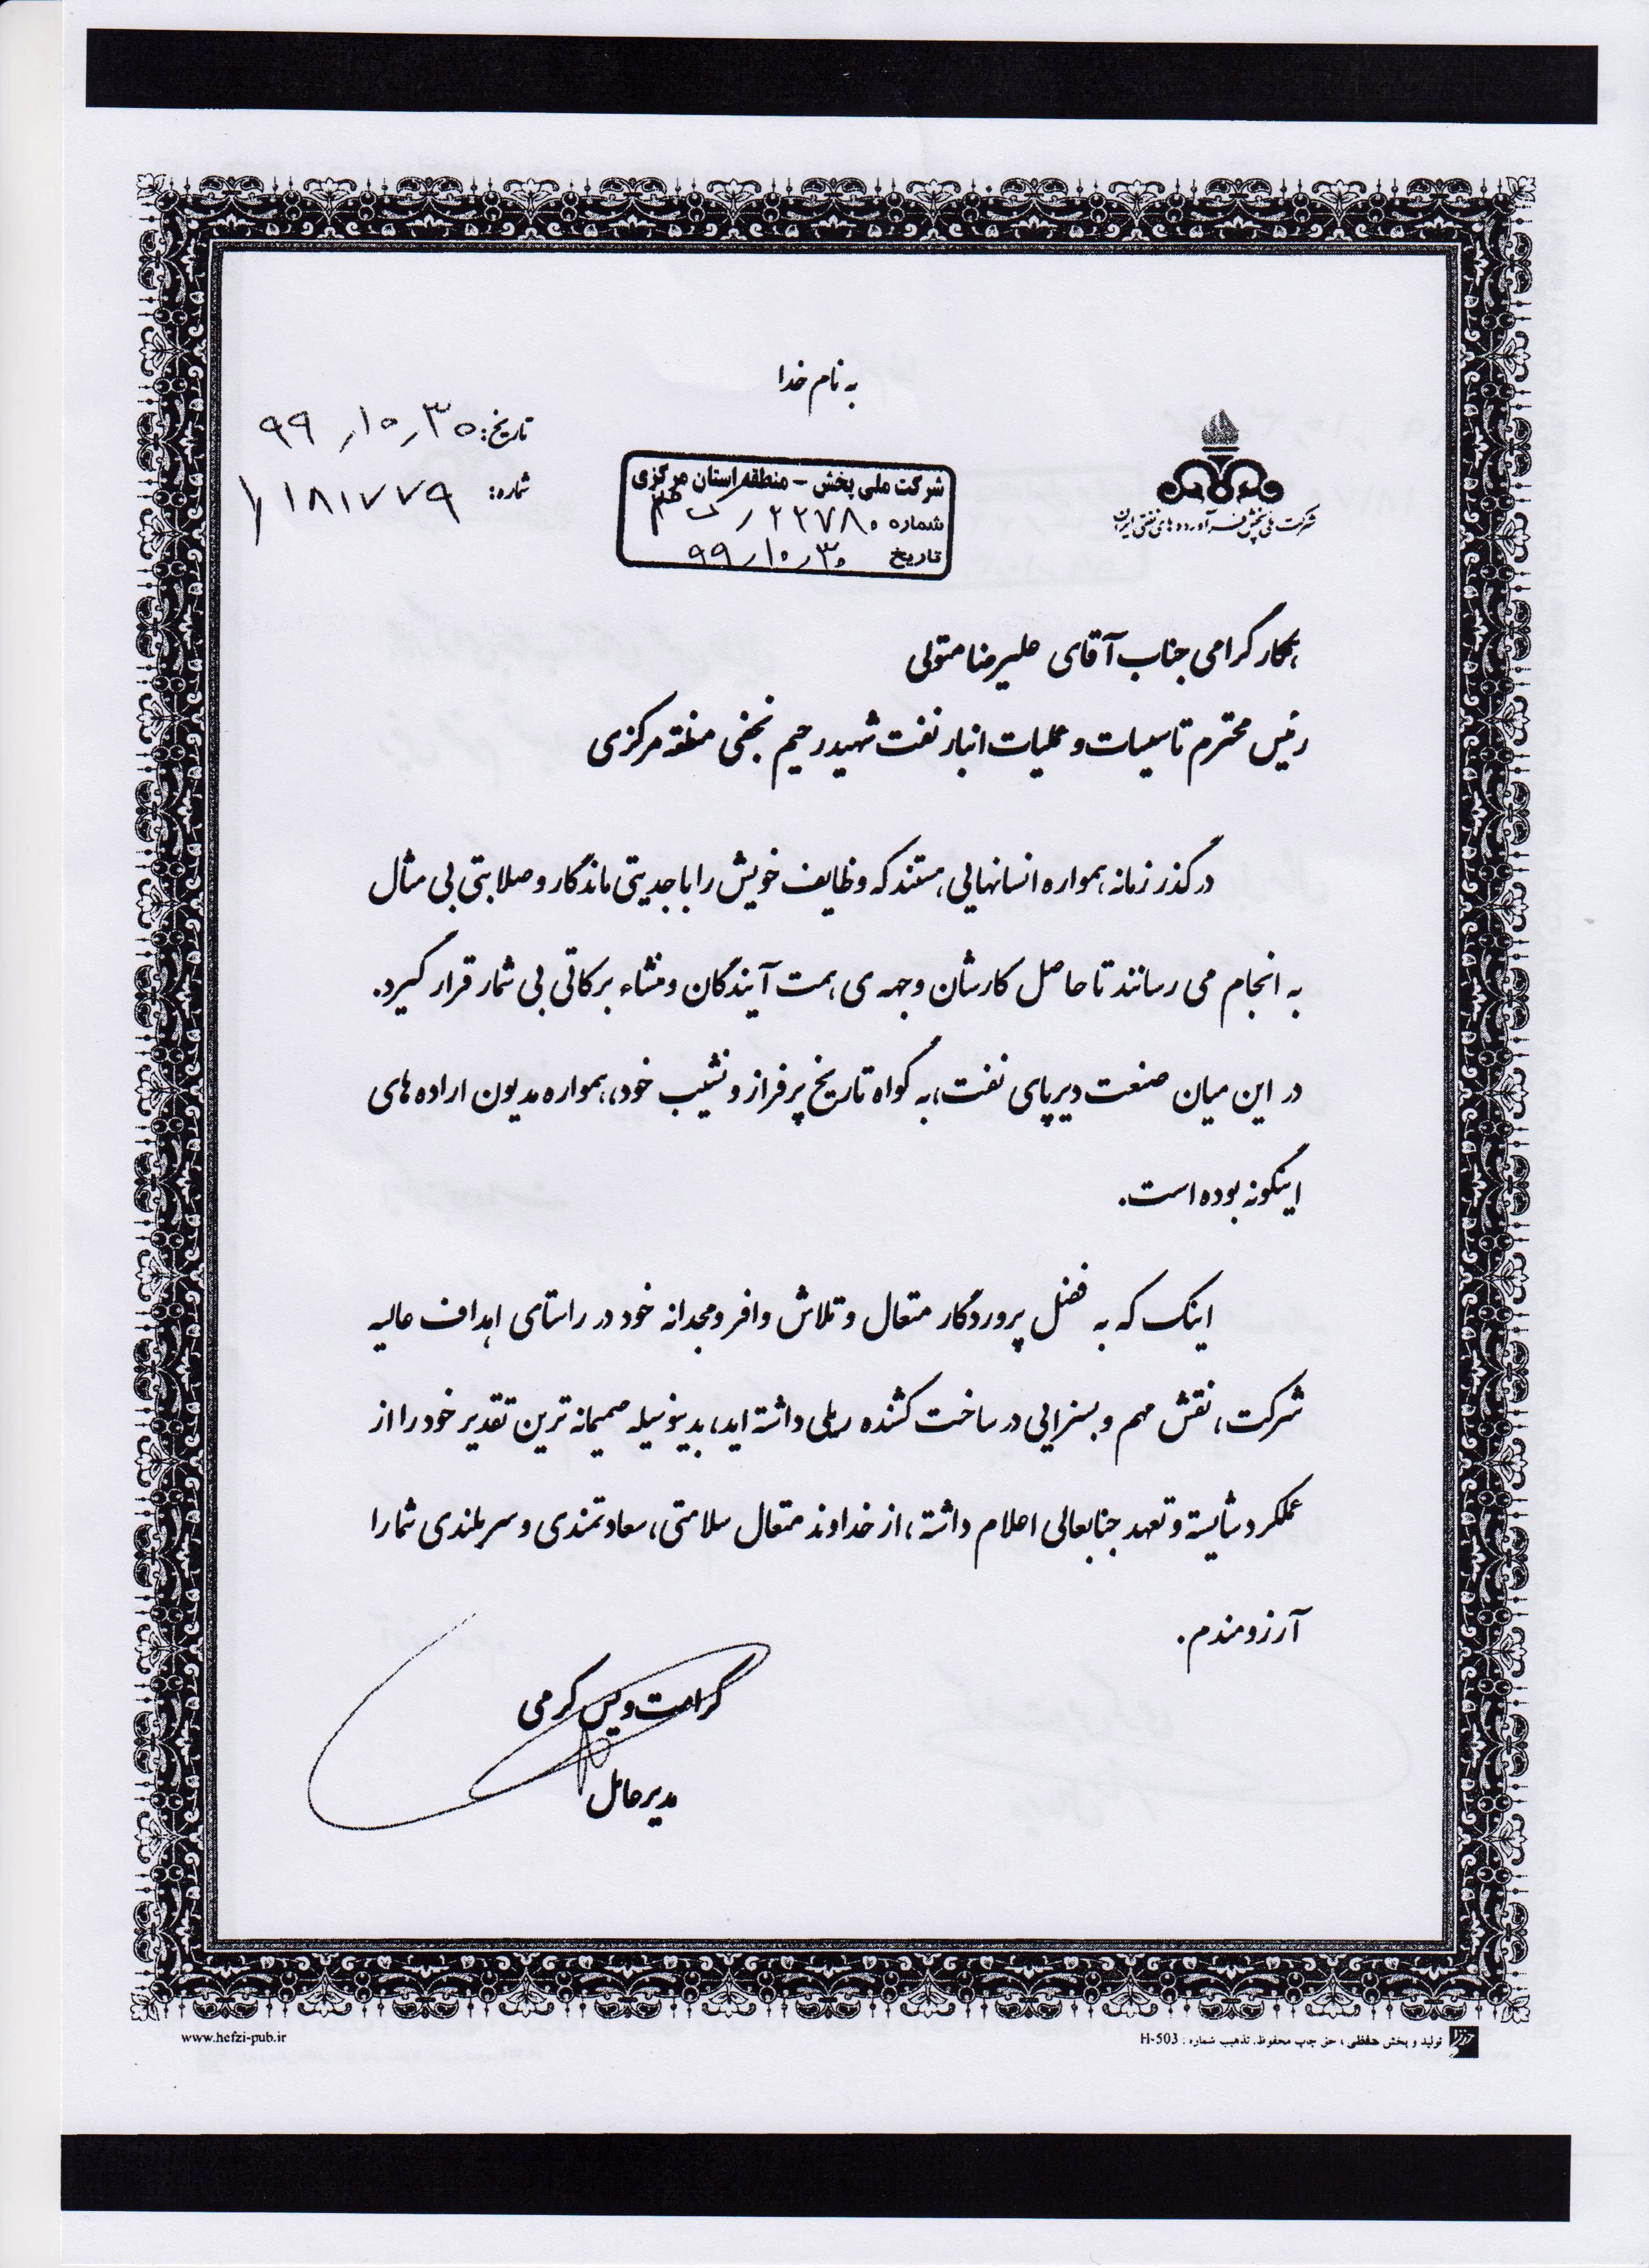 به نام خدا
تاریخ: ۹۹٫۱۰٫۳۰
شماره: ۱/۱۸۱۷۷۹
شرکت ملی پخش فرآورده های نفتی ایران
شرکت ملی پخش - منطقه استان مرکزی
شماره ۲۲۷۸۰
تاریخ ۹۹٫۱۰٫۳۰
همکار گرامی جناب آقای علیرضا متولی
رئیس محترم تاسیسات و عملیات انبار نفت شهید رحیم نجفی منطقه مرکزی
در گذر زمانه همواره انسانهایی هستند که وظایف خویش را با جدیتی ماندگار و صلابتی بی مثال
به انجام می رسانند تا حاصل کارشان وجهه ی همت آیندگان و منشاء برکاتی بی شمار قرار گیرد.
در این میان صنعت دیرپای نفت، به گواه تاریخ پرفراز و نشیب خود، همواره مدیون اراده های
اینگونه بوده است.
اینک که به فضل پروردگار متعال و تلاش وافر و مجدانه خود در راستای اهداف عالیه
شرکت، نقش مهم و بسزایی در ساخت کشنده ریلی داشته اید، بدینوسیله صمیمانه ترین تقدیر خود را از
عملکرد شایسته و تعهد جنابعالی اعلام داشته، از خداوند متعال سلامتی، سعادتمندی و سربلندی شما را
آرزومندم.
کرامت ویس کرمی
مدیرعامل
www.hefzi-pub.ir
تولید و پخش حفظی ، حق چاپ محفوظ. تذهیب شماره : H-503